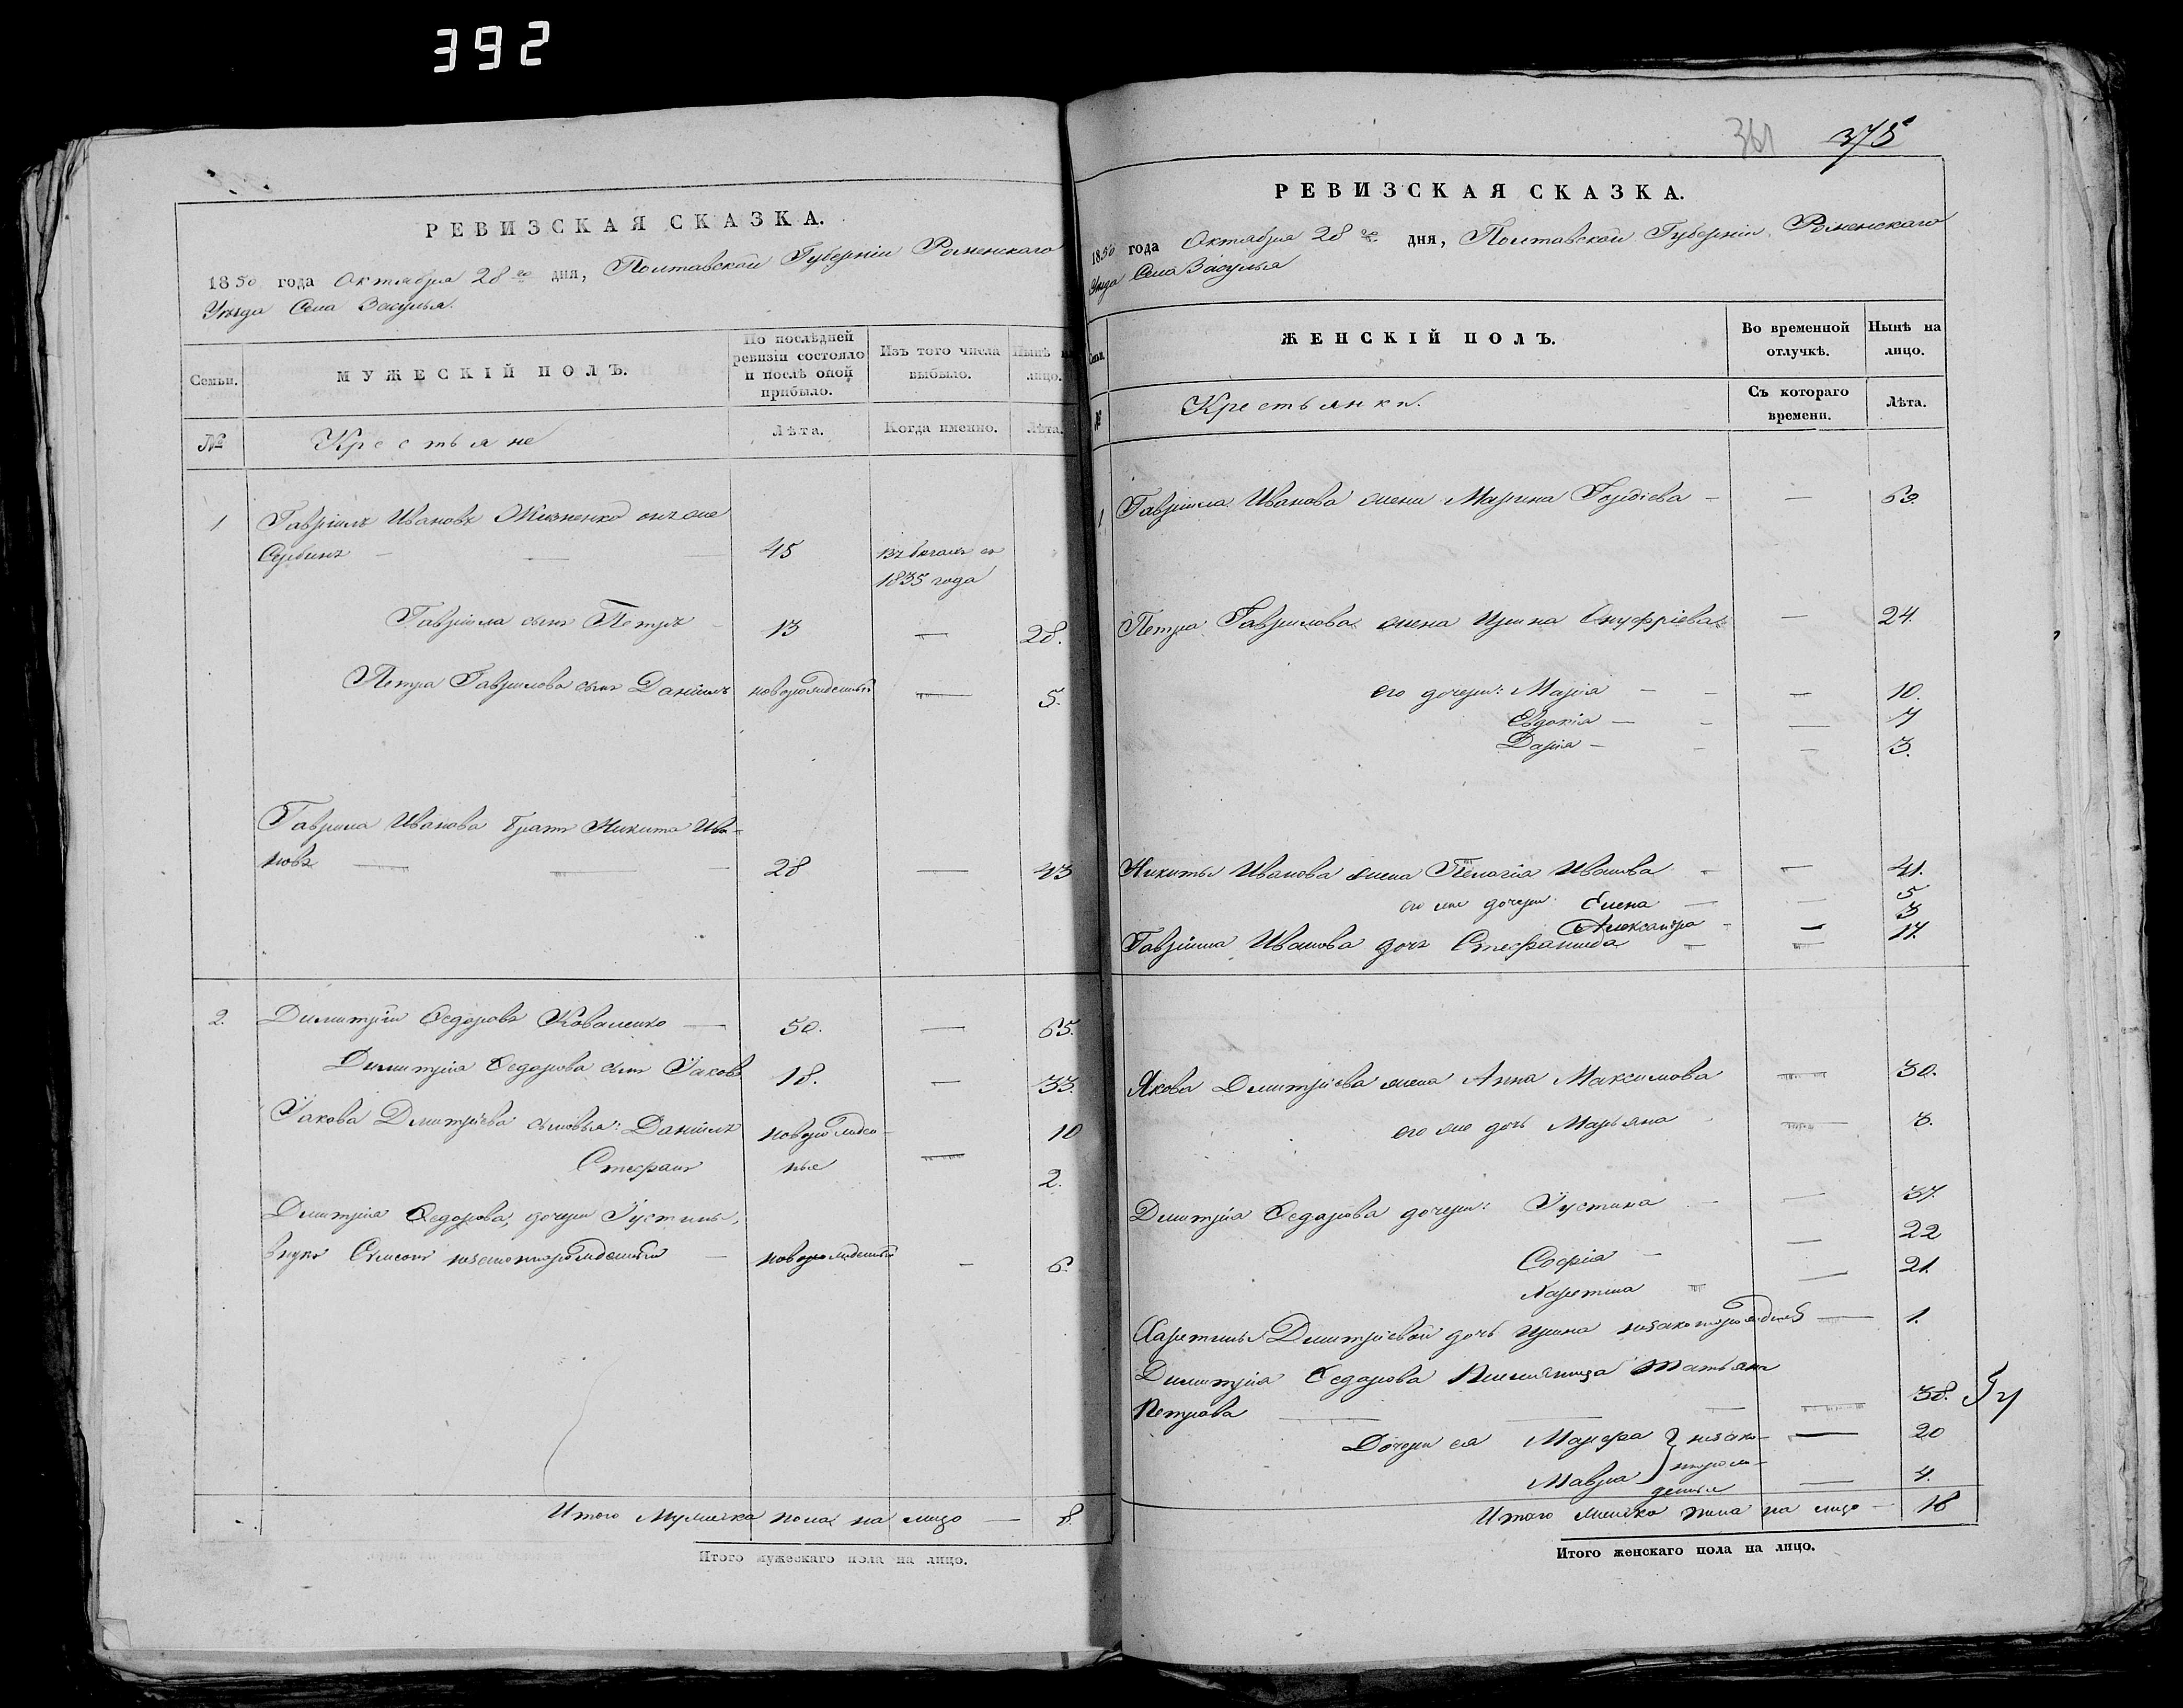 392
РЕВИЗСКАЯ СКАЗКА.
1850 года Октября 28го дня, Полтавской Губерніи Роменскаго
Уѣзда Села Засулья.
Семьи.
МУЖЕСКІЙ ПОЛЪ.
По послѣдней ревизіи состояло и послѣ оной прибыло.
Изъ того числа выбыло.
Нынѣ на лицо.
№
Крестьяне
Лѣта.
Когда именно.
Лѣта.
1 Гавріилъ Ивановъ онъ же
45 въ бегахъ съ
1835 года
Гавріила сынъ Петръ 13 — 28.
Петра Гаврилова сынъ Даніилъ новорожденный — 5.
Гаврила Ивановa братъ Никита Ива-
новъ — 28 — 43
2. Димитрій Федоровъ Коваленко — 50. — 65.
Димитрія Федорова сынъ Іаковъ 18. — 33.
Іакова Дмитріева сыновья: Даніилъ новорожден- 10
Стефанъ ные — 2.
Дмитрія Федорова, дочери Іустины,
внукъ Симеонъ незаконнорожденный — новорожденный — 6.
Итого Мужеска пола на лицо — 8.
Итого мужескаго пола на лицо.
361 375
РЕВИЗСКАЯ СКАЗКА.
1850 года Октября 28го дня, Полтавской Губерніи Роменскаго
Уѣзда Села Засулья
Семьи.
ЖЕНСКІЙ ПОЛЪ.
Во временной отлучкѣ.
Нынѣ на лицо.
№
Крестьянки.
Съ котораго времени.
Лѣта.
1 Гавріила Иванова жена Марина Гордіева — — 60.
Петра Гаврилова жена Ирина Онуфріева — 24.
его дочери: Марія — — — 10.
Евдокія — — — 7
Дарія — — — 3.
Никиты Иванова жена Пелагія Иванова — — 41.
его же дочери: Елена — — 5
Александра — — 3
Гавріила Иванова дочь Стефанида — — 17.
Якова Дмитріева жена Анна Максимова — 30.
его же дочь Марьяна — 8.
Дмитрія Федорова дочери: Іустина — — 37.
Софія — — 22
Харитина — — 21.
Харитины Дмитріевой дочь Ирина незаконнорожден — 1.
Димитрія Федорова племяница Татьяна
Петрова — — — — 38.
Дочери ея Марфа } незако- — 20
Мавра } ннорож- — 4.
денные
Итого женска пола на лицо — 16
Итого женскаго пола на лицо.